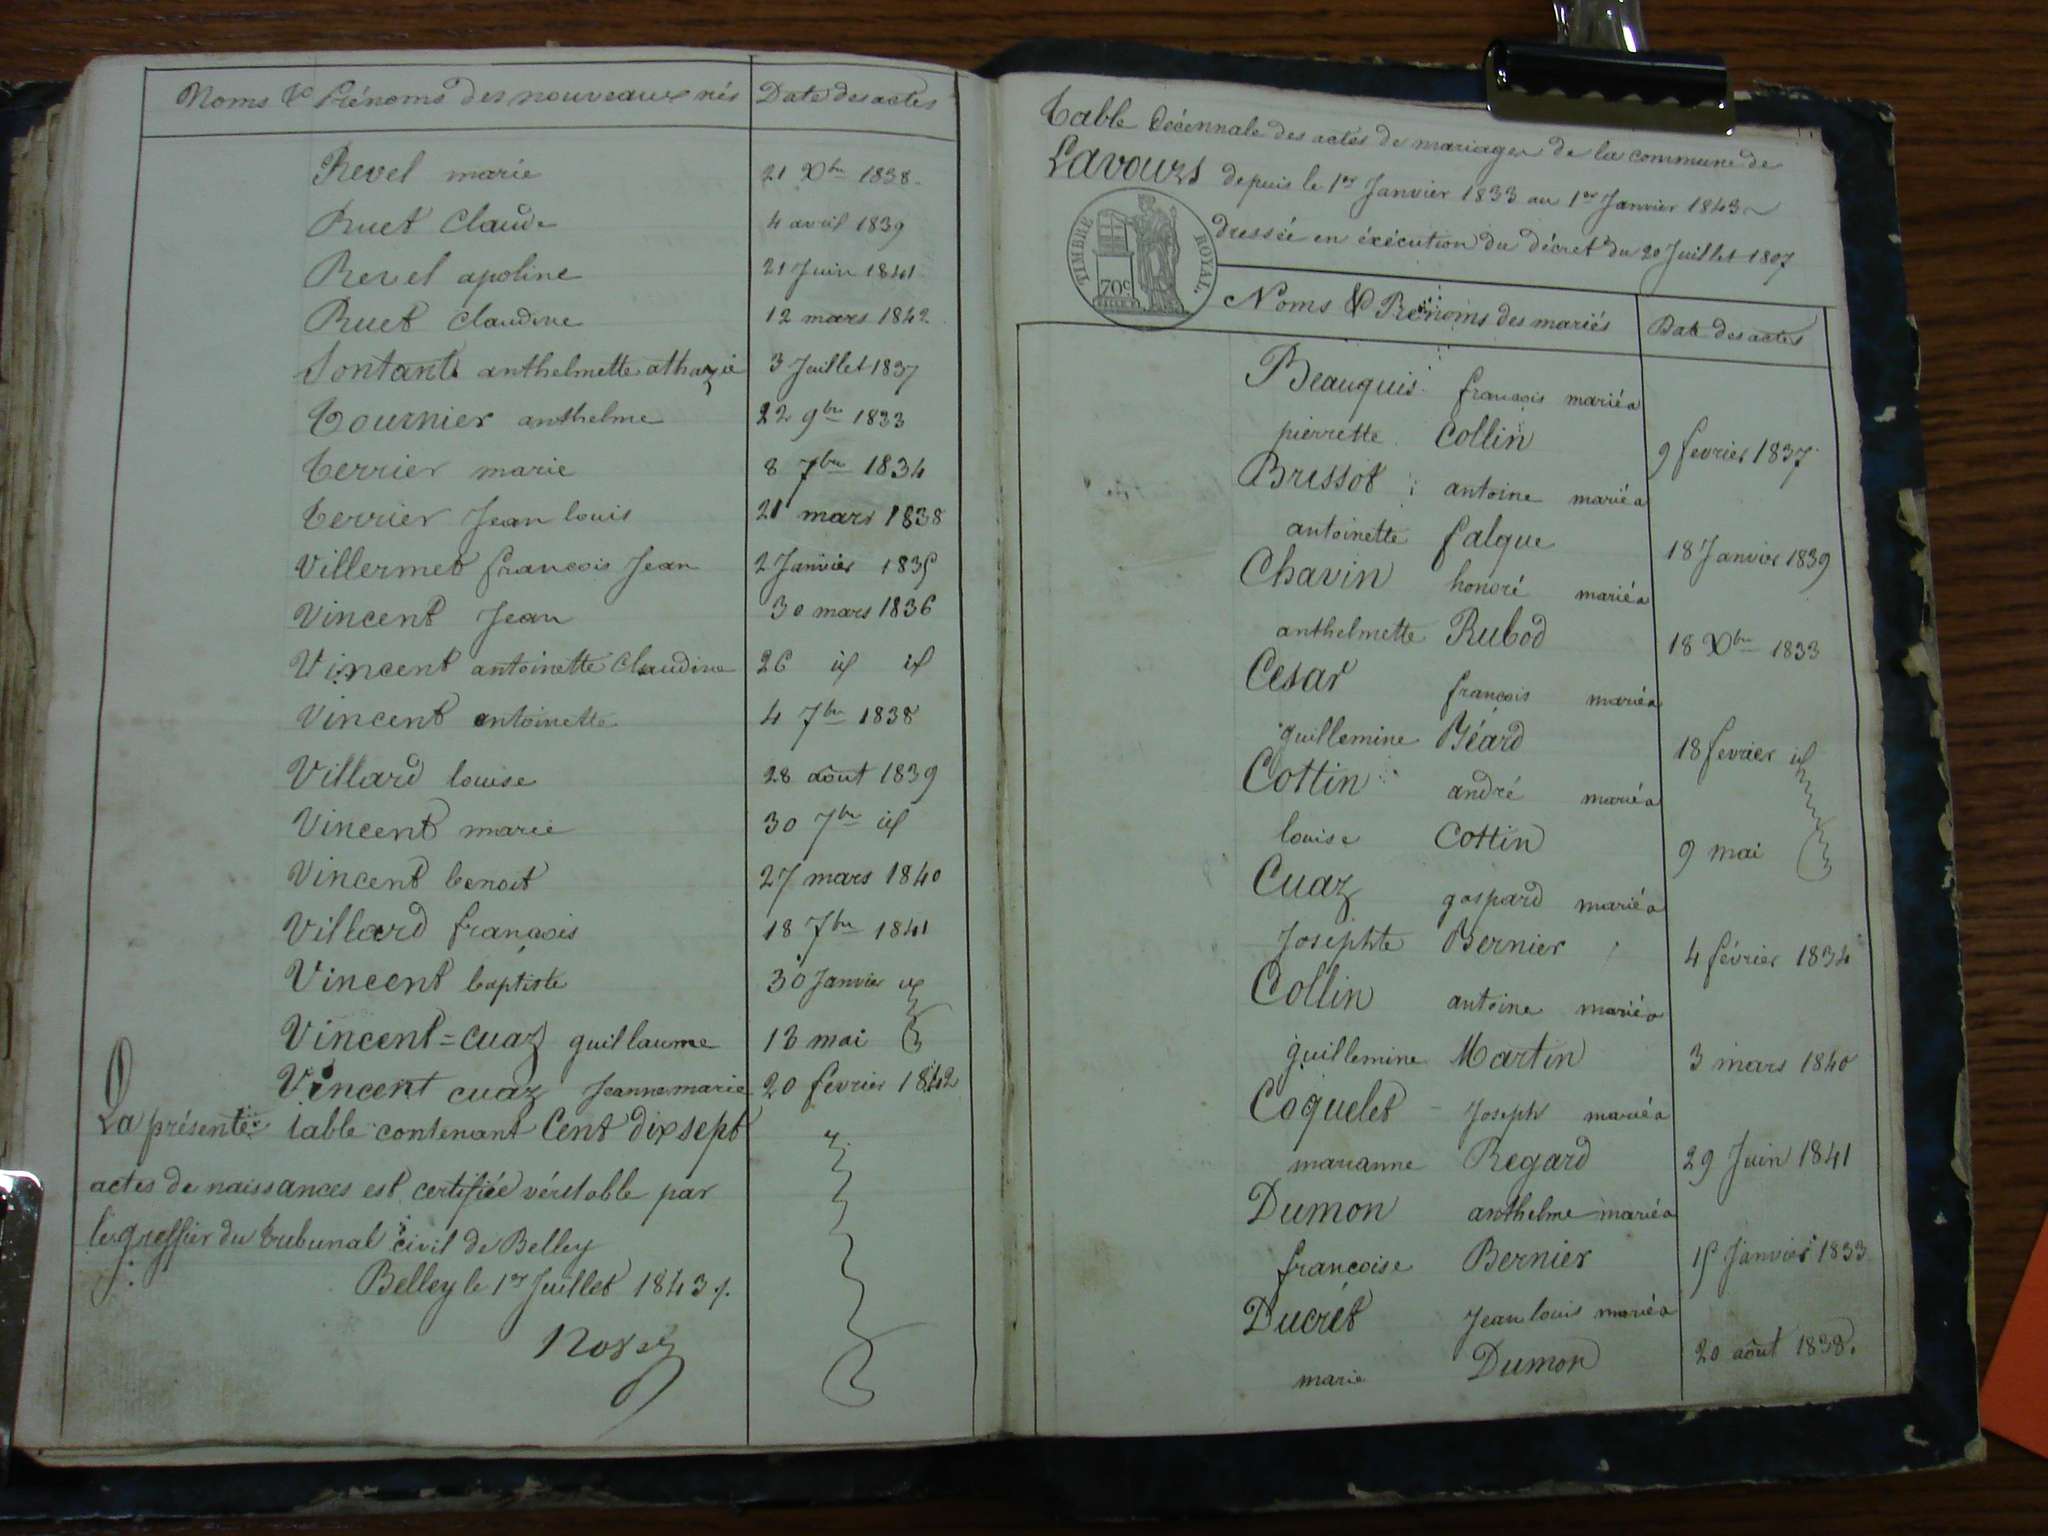 Noms & Prénoms des nouveaux nés Date des actes
Revel marie 21 Xbre 1838.
Ruet Claude 4 avril 1839
Revel apoline 21 Juin 1841
Ruet Claudine 12 mars 1842
anthelmette 3 Juillet 1837
Tournier anthelme 22 9bre 1833
Terrier marie 8 7bre 1834
Terrier Jean louis 21 mars 1838
Villermet françois Jean 2 Janvier 1835
Vincent Jean 30 mars 1836
Vincent antoinette Claudine 26 id id
Vincent antoinette 4 7bre 1838
Villard louise 28 août 1839
Vincent marie 30 7bre id
Vincent benoit 27 mars 1840
Villard françois 18 7bre 1841
Vincent baptiste 30 Janvier id
Vincent=cuaz guillaume 13 mai
Vincent cuaz Jeanne marie 20 fevrier 1842
La présente table contenant Cent dix sept
actes de naissances est certifiée véritable par
le greffier du tribunal civil de Belley
Belley le 1er Juillet 1843
Table Décennale des actes de mariages de la commune de
Lavours depuis le 1er Janvier 1833 au 1er Janvier 1843
dressée en éxécution du décret du 20 Juillet 1807
TIMBRE ROYAL.
70c
Noms & Prénoms des mariés Date des actes
Beauquis françois marié a
pierrette Collin 9 fevrier 1837
Brissot antoine marié a
antoinette falque 18 Janvier 1839
Chavin honoré marié a
anthelmette Rubod 18 Xbre 1833
Cesar françois marié a
guillemine Géard 18 fevrier id
Cottin andré marié a
louise Cottin 9 mai
Cuaz gaspard marié a
Josephte Bernier 4 février 1834
Collin antoine marié a
guillemine Martin 3 mars 1840
Coquelet Joseph marié a
marianne Regard 29 Juin 1841
Dumon anthelme marié a
françoise Bernier 15 Janvier 1833
Ducrét Jean louis marié a
marie Dumon 20 août 1838.